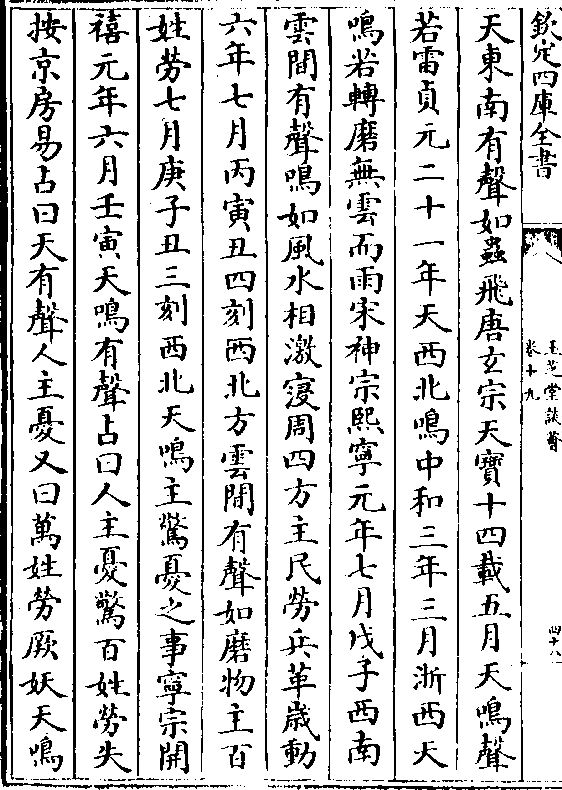 欽定四庫全書
玉芝堂談薈
卷十九
四十八
天東南有聲如蟲飛唐玄宗天寶十四載五月天鳴聲
若雷貞元二十一年天西北鳴中和三年三月浙西天
鳴若轉磨無雲而雨宋神宗熙寧元年七月戊子西南
雲間有聲鳴如風水相激寖周四方主民勞兵革歲動
六年七月丙寅丑四刻西北方雲間有聲如磨物主百
姓勞七月庚子丑三刻西北天鳴主驚憂之事寧宗開
禧元年六月壬寅天鳴有聲占曰人主憂驚百姓勞失
按京房易占曰天有聲人主憂又曰萬姓勞厥妖天鳴